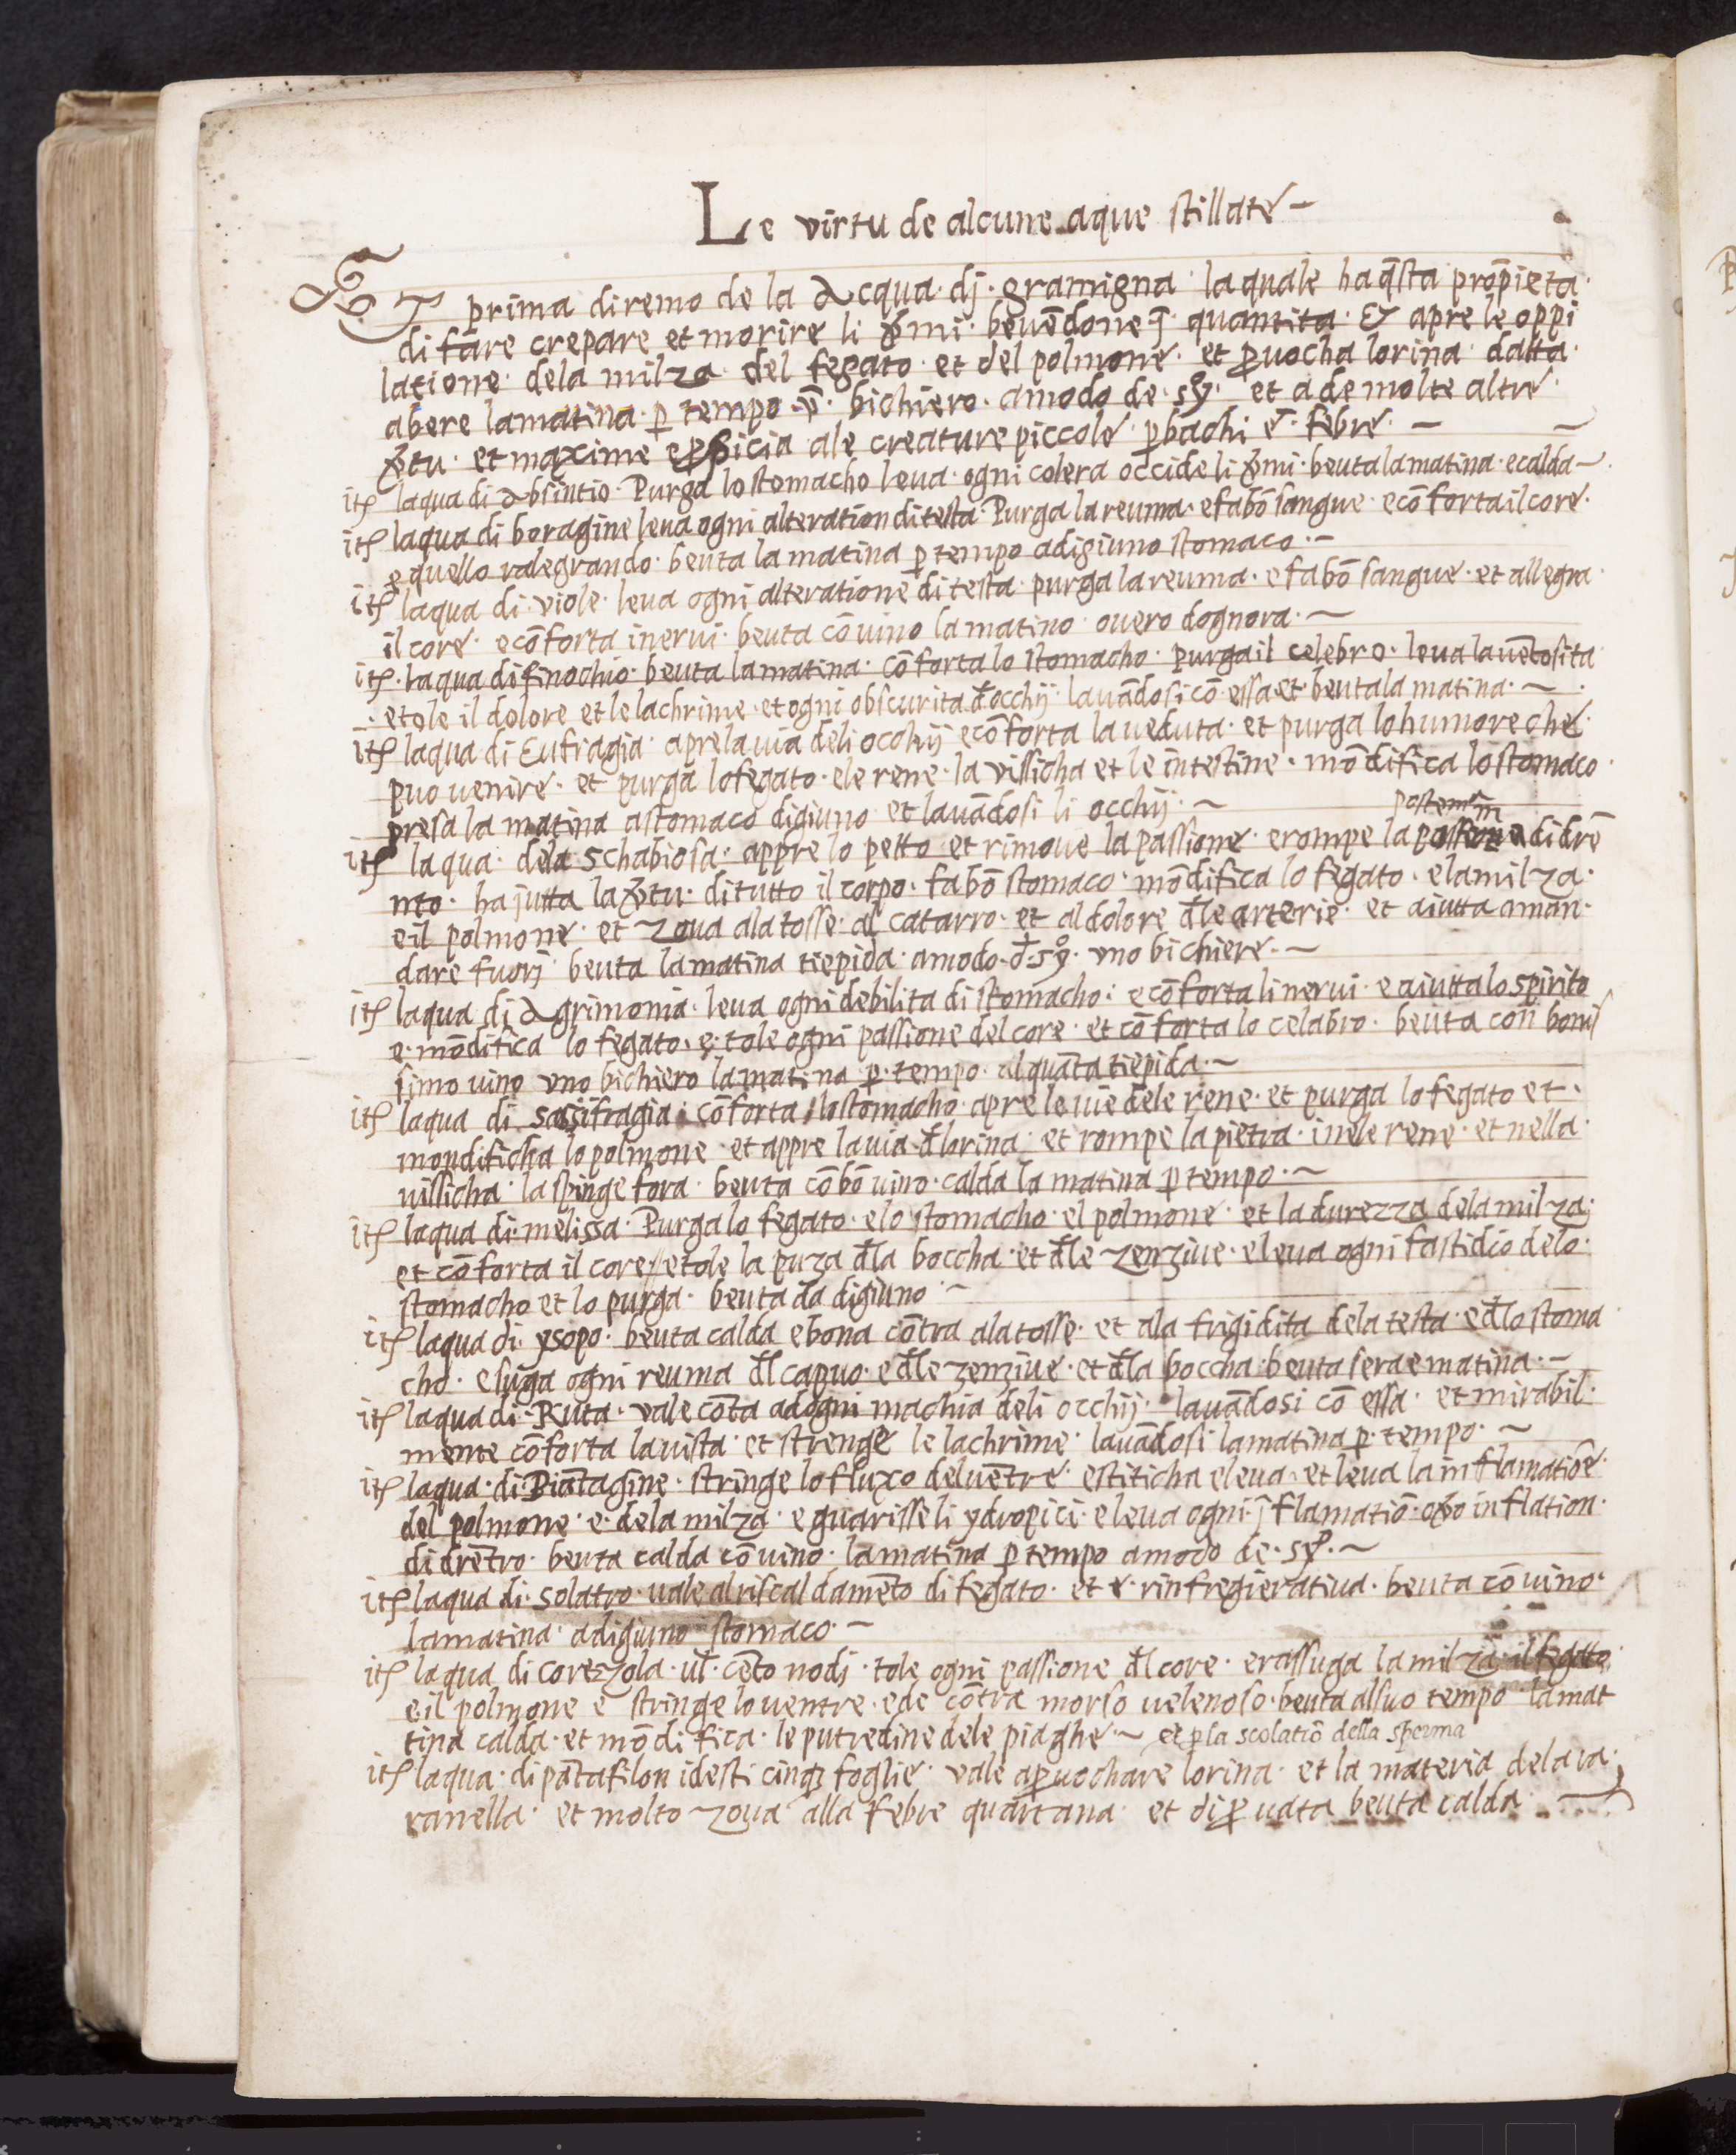 Le virtu de alcune aque stillate
Et prima diremo de la Acqua · dj · gramigna · laquale ha q̄sta prop̄ieta ·
di fare crepare et morire li v̄mi · beuēdone q̄ quantita · & apre le oppi
latione · dela milza · del fegato · et del polmone · et ꝓuocha lorina · datta ·
abere lamatina · ꝑ tempo · v̄ · bichiero · amodo de · sẙ · et a de molte altre ·
v̄tu · et maxime ale creature piccole ꝑ bachi e · febre · –
itꝫ laqua di Absintio · Purga lo stomacho leua · ogni colera occide li v̄mi · beuta lamatina · ecalda ~
itꝫ laqua di boragine leua ogni alteration di testa · Purga la reuma · e fa bō sangue · ecōforta il core ·
e quello ralegrando · beuta la matina ꝑ tempo adigiuno stomaco · –
itꝫ laqua di · viole · leua ogni alteratione di testa · purga la reuma · e fa bō sangue · et allegra ·
il core · ecōforta i nerui · beuta cō uino la matino · ouero dognora · ~
itꝫ · laqua di finochio · beuta la matina · cōforta lo stomacho · purga il celebro · leua la uētosita
· et ole il dolore et le lachrime · et ogni obscurita đ occhij · lauādosi cō essa et · beuta la matina · ~
itꝫ laqua di Eufragia · apre la uia deli occhij ecōforta la ueduta · et purga lo humore che ·
puo uenire · et purga lo fegato · ele rene · la vissicha et le intestine · mōdifica lo stomaco ·
presa la matina astomaco digiuno et lauādosi li occhij · ~
postema
itꝫ laqua · dela schabiosa · appre lo petto et rimoue la passione · e rompe la di drē
nto · ha jutta la v̄tu · di tutto il corpo · fa bō stomaco · mōdifica lo fegato · ela milza ·
e il polmone · et zoua ala tosse · al catarro · et al dolore đle arterie · et aiutta aman ·
dare fuorj · beuta la matina tiepida · amodo · đ · sẙ · vno bichiere · ~
itꝫ laqua di Agrimonia · leua ogni debilita di stomacho : ecōforta li nerui · e aiutta lo spirito
e · mōdifica lo fegato · e · tole ogni passione del core · et cōforta lo celabro · beuta con bonis
simo uino vno bichiero la matina · ꝑ · tempo · alquāta tiepida · ~
itꝫ laqua di sassifragia : cōforta · lo stomacho · apre le uie dele rene · et purga lo fegato et ·
mondificha lo polmone · et appre la uia đ lorina · et rompe la pietra · in ele rene · et nella ·
uissicha · la spinge fora · beuta cō bō uino · calda la matina ꝑ tempo · ~
itꝫ laqua di · melissa · Purga lo fegato · e lo stomacho · el polmone · et la durezza dela milza ·
et cōforta il core // etole la puza đla boccha · et đle zenziue · e leua ogni fastidio delo ·
stomacho et lo purga · beuta da digiuno ~
itꝫ laqua di · ysopo · beuta calda e bona cōtra ala tosse · et ala frigidita dela testa · e đlo stoma
cho · e suga ogni reuma đl capuo · e đle zenziue · et đla boccha · beuta sera e matina · –
itꝫ laqua di · Ruta · vale cōta ad ogni machia deli occhij · lauādosi cō essa · et mirabil ·
mente cōforta la uista · et strenge le lachrime · lauādosi la matina ꝑ tempo · ~
itꝫ laqua · di Piātagine · stringe lo fluxo del uētre · estiticha eleua · et leua la inflamatiōe ·
del polmone · e · dela milza · e guarisse li ydropici · e leua ogni · īflamatiō · ov̄o inflation ·
di drētro · beuta calda cō uino · la matina ꝑ tempo amodo de · sẙ · ~
itꝫ laqua di · solatro · uale al riscaldamēto di fegato · et e · rinfregieratiua · beuta cō uino ·
lamatina · adigiuno stomaco · –
itꝫ laqua di corezola · ul · cēto nodj · tole ogni passione đl core · e rassuga la milza · il fegatto
e il polmone e stringe lo uentre · e de cōtra morso uelenoso · beuta al suo tempo la mat
tina calda · et mōdifica · le putredine dele piaghe · ~ et ꝑ la scolatiō della sperma
itꝫ laqua · di pātafilon idest i cinqꝫ foglie · vale a ꝓuochare lorina · et la materia dela ra ·
ranella · et molto zoua alla febre quartana · et di ꝓuata beuta calda ·